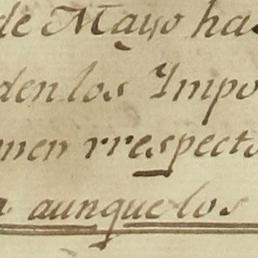 de Mayo has
den los Impo
men rrespecto
a aunque los